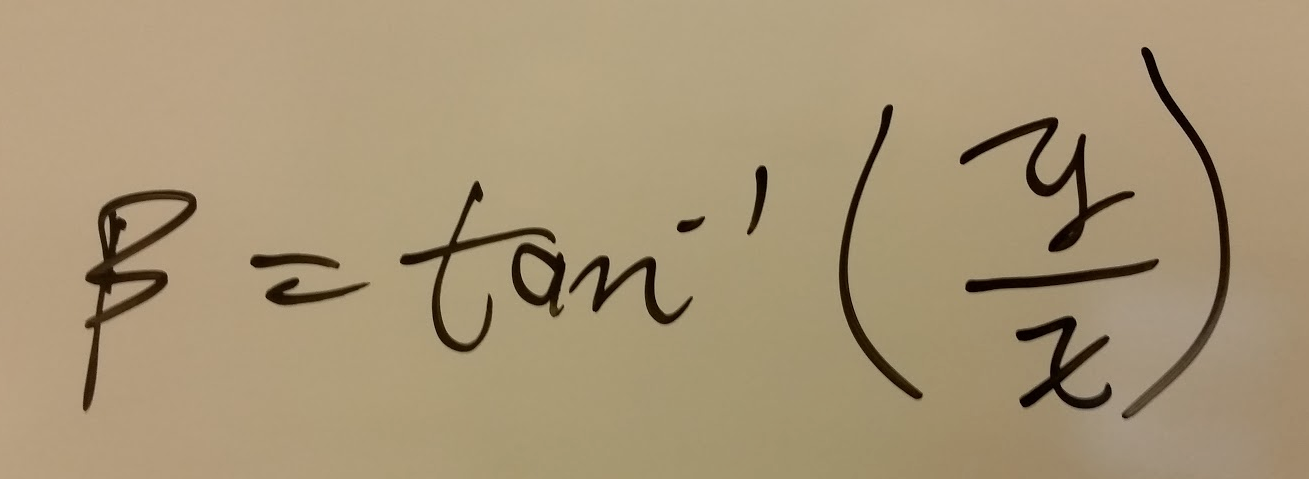 β = tan⁻¹ (y/x)